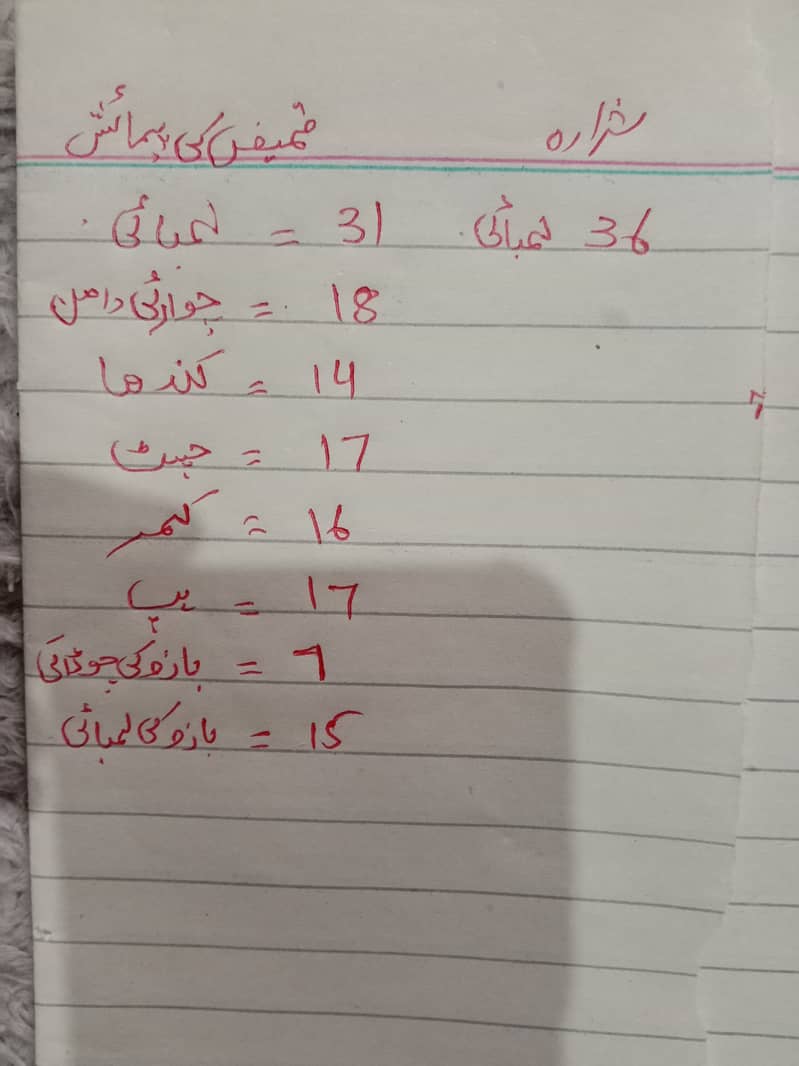 شرارہ
قمیض کی پیمائش
36 لمبائی
لمبائی = 31
چوارئی دامن = 18
کندھا = 14
چیسٹ = 17
کمر = 16
ہپ = 17
بازو کی چوڑائی = 7
بازو کی لمبائی = 15